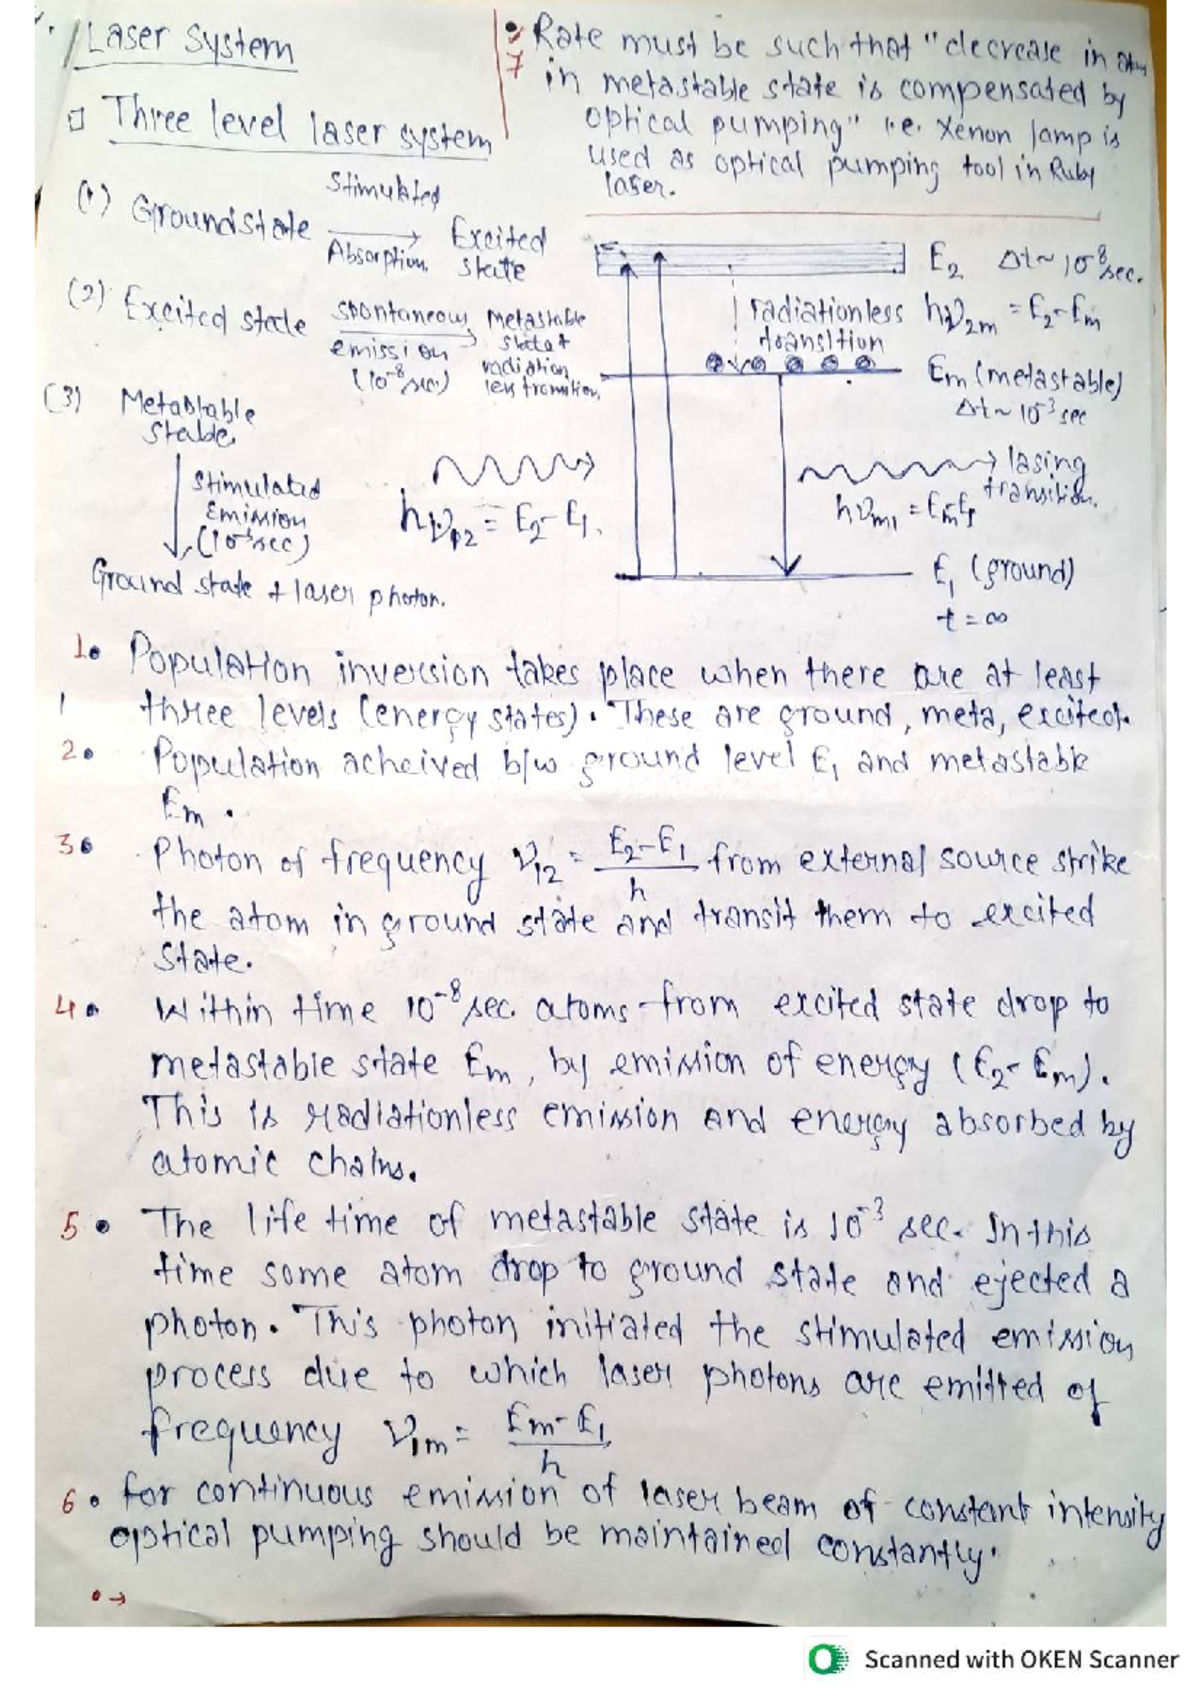 Laser system
Three level laser system
(1) Ground state Stimulated Absorption Excited state
(2) Excited state spontaneous emission (10⁻⁸ sec.) Metastable state + radiation less transition
(3) Metastable
Stimulated Emission (10⁻³ sec)
Ground state + laser photon.
hν₁₂ = E₂-E₁.
7 Rate must be such that "decrease in
in metastable state is compensated by
optical pumping" i.e. Xenon lamp is
used as optical pumping tool in Ruby
laser.
E₂ Δt~10⁻⁸ sec.
radiationless transition
hν₂m = E₂-Em
Em (metastable)
Δt~10⁻³ sec
lasing transition.
hνm₁ = Em-E₁
E₁ (ground)
t = ∞
1. Population inversion takes place when there are at least
three levels (energy states). These are ground, meta, excited.
2. Population acheived b/w ground level E₁ and metastable
Em.
3. Photon of frequency ν₁₂ = E₂-E₁/h from external source strike
the atom in ground state and transit them to excited
state.
4. Within time 10⁻⁸ sec. atoms from excited state drop to
metastable state Em, by emission of energy (E₂-Em).
This is radiationless emission and energy absorbed by
atomic chains.
5. The life time of metastable state is 10⁻³ sec. In this
time some atom drop to ground state and ejected a
photon. This photon initiated the stimulated emission
process due to which laser photons are emitted of
frequency ν₁m = Em-E₁/h
6. for continuous emission of laser beam of constant intensity
optical pumping should be maintained constantly.
Scanned with OKEN Scanner